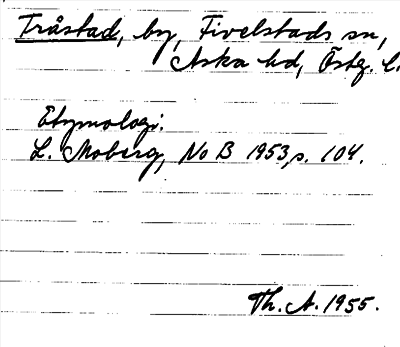 Tråstad, by, Fivelstads sn,
Aska hd, Östg. l.
Etymologi.
L. Moberg, No B 1953, s. 104.
Th. A. 1955.